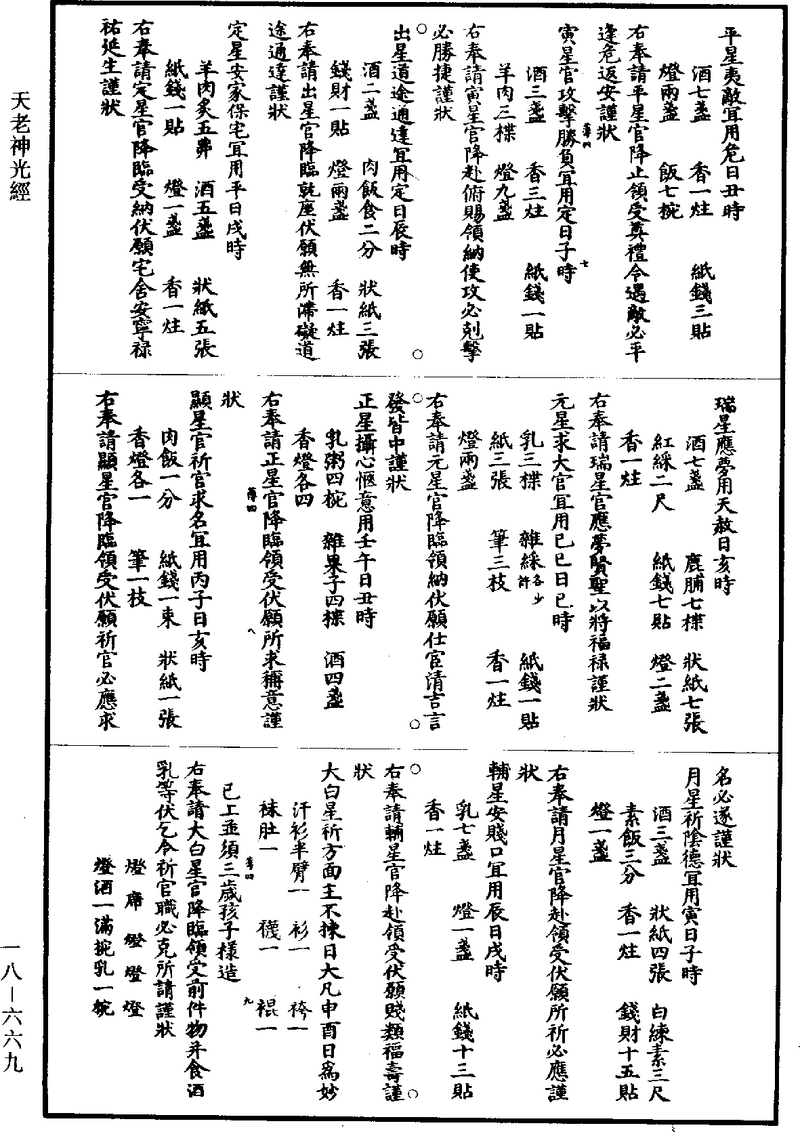 平星夷敵宜用危日丑時
酒七盞　香一炷　紙錢三貼
燈兩盞　飯七椀
右奉請平星官降止領受奠禮令遇敵必平
逢危返安謹狀
寅星官攻擊勝負宜用定日子時
酒三盞　香三炷　紙錢一貼
羊肉三楪　燈九盞
右奉請寅星官降赴俯賜領納使攻必剋擊
必勝捷謹狀
出星道途通達宜用定日辰時
酒二盞　肉飯食二分　狀紙三張
錢財一貼　燈兩盞　香一炷
右奉請出星官降臨就座伏願無所滯礙道
途通達謹狀
定星安家保宅宜用平日戌時
羊肉炙五弗　酒五盞　狀紙五張
紙錢一貼　燈一盞　香一炷
右奉請定星官降臨受納伏願宅舍安寧祿
祐延生謹狀
瑞星應夢用天赦日亥時
酒七盞　鹿脯七楪　狀紙七張
紅綵二尺　紙錢七貼　燈二盞
香一炷
右奉請瑞星官應夢賢聖以將福祿謹狀
元星求大官宜用己巳日巳時
乳三楪　雜綵各少許　紙錢一貼
紙三張　筆三枝　香一炷
燈兩盞
右奉請元星官降臨領納伏願仕宦清吉言
發皆中謹狀
正星攝心愜意用壬午日丑時
乳粥四椀　雜果子四楪　酒四盞
香燈各四
右奉請正星官降臨領受伏願所求稱意謹
狀
顯星官祈官求名宜用丙子日亥時
肉飯一分　紙錢一束　狀紙一張
香燈各一　筆一枝
右奉請顯星官降臨領受伏願祈官必應求
名必遂謹狀
月星祈陰德宜用寅日子時
酒三盞　狀紙四張　白練素三尺
素飯三分　香一炷　錢財十五貼
燈一盞
右奉請月星官降赴領受伏願所祈必應謹
狀
輔星安賤口宜用辰日戌時
乳七盞　燈一盞　紙錢十三貼
香一炷
右奉請輔星官降赴領受伏願賤類福壽謹
狀
大白星祈方面主不揀日大凡申酉日爲妙
汗衫半臂一　衫一　袴一
袜肚一　襪一　裩一
已上並須三歲孩子樣造
右奉請大白星官降臨領受前件物并食酒
乳等伏乞令祈官職必克所請謹狀
燈　席　燈　燈　燈
燈酒一滿椀乳一椀
天老神光經
一八－六六九